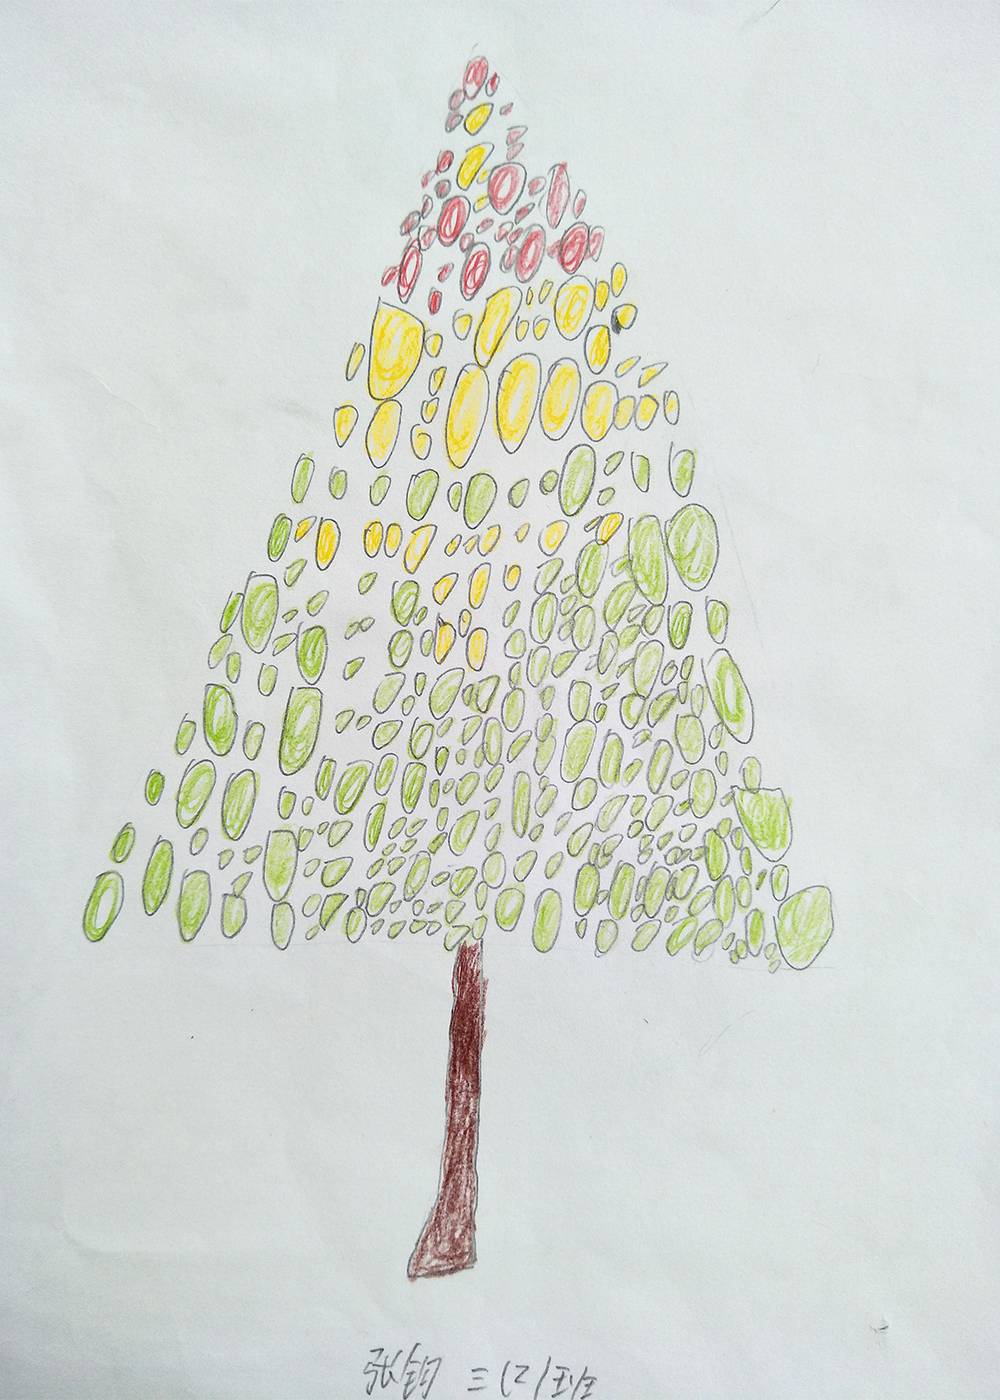 张钧 三(2)班